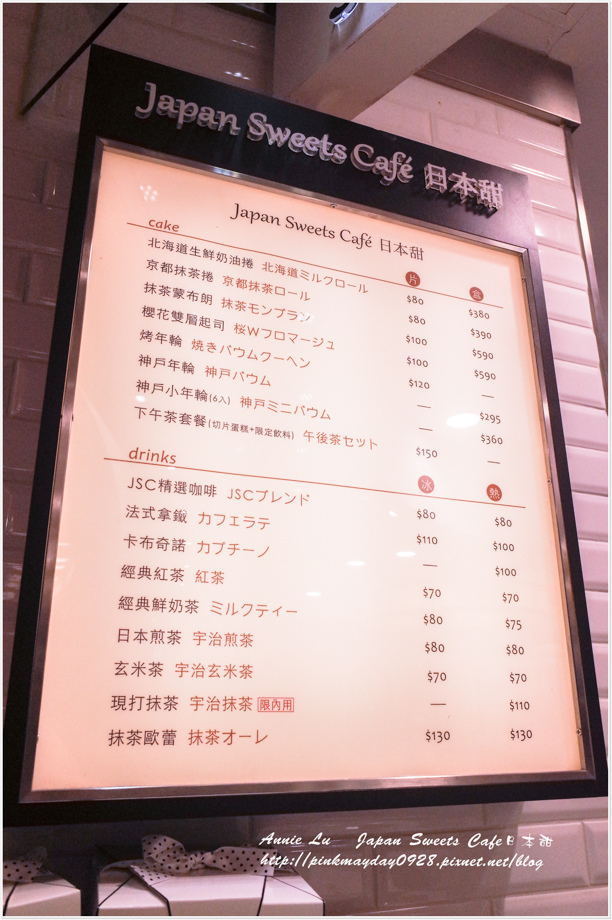 Japan Sweets Café 日本甜
Japan Sweets Café 日本甜
cake 片 盒
北海道生鮮奶油捲 北海道ミルクロール $80 $380
京都抹茶捲 京都抹茶ロール $80 $390
抹茶蒙布朗 抹茶モンブラン $100 $590
櫻花雙層起司 桜Wフロマージュ $100 $590
烤年輪 焼きバウムクーヘン $120 —
神戶年輪 神戸バウム — $295
神戶小年輪(6入) 神戸ミニバウム — $360
下午茶套餐(切片蛋糕+限定飲料) 午後茶セット $150 —
drinks 冰 熱
JSC精選咖啡 JSCブレンド $80 $80
法式拿鐵 カフェラテ $110 $100
卡布奇諾 カプチーノ — $100
經典紅茶 紅茶 $70 $70
經典鮮奶茶 ミルクティー $80 $75
日本煎茶 宇治煎茶 $80 $80
玄米茶 宇治玄米茶 $70 $70
現打抹茶 宇治抹茶 限內用 — $110
抹茶歐蕾 抹茶オーレ $130 $130
Annie Lu Japan Sweets Cafe日本甜
http://pinkmayday0928.pixnet.net/blog